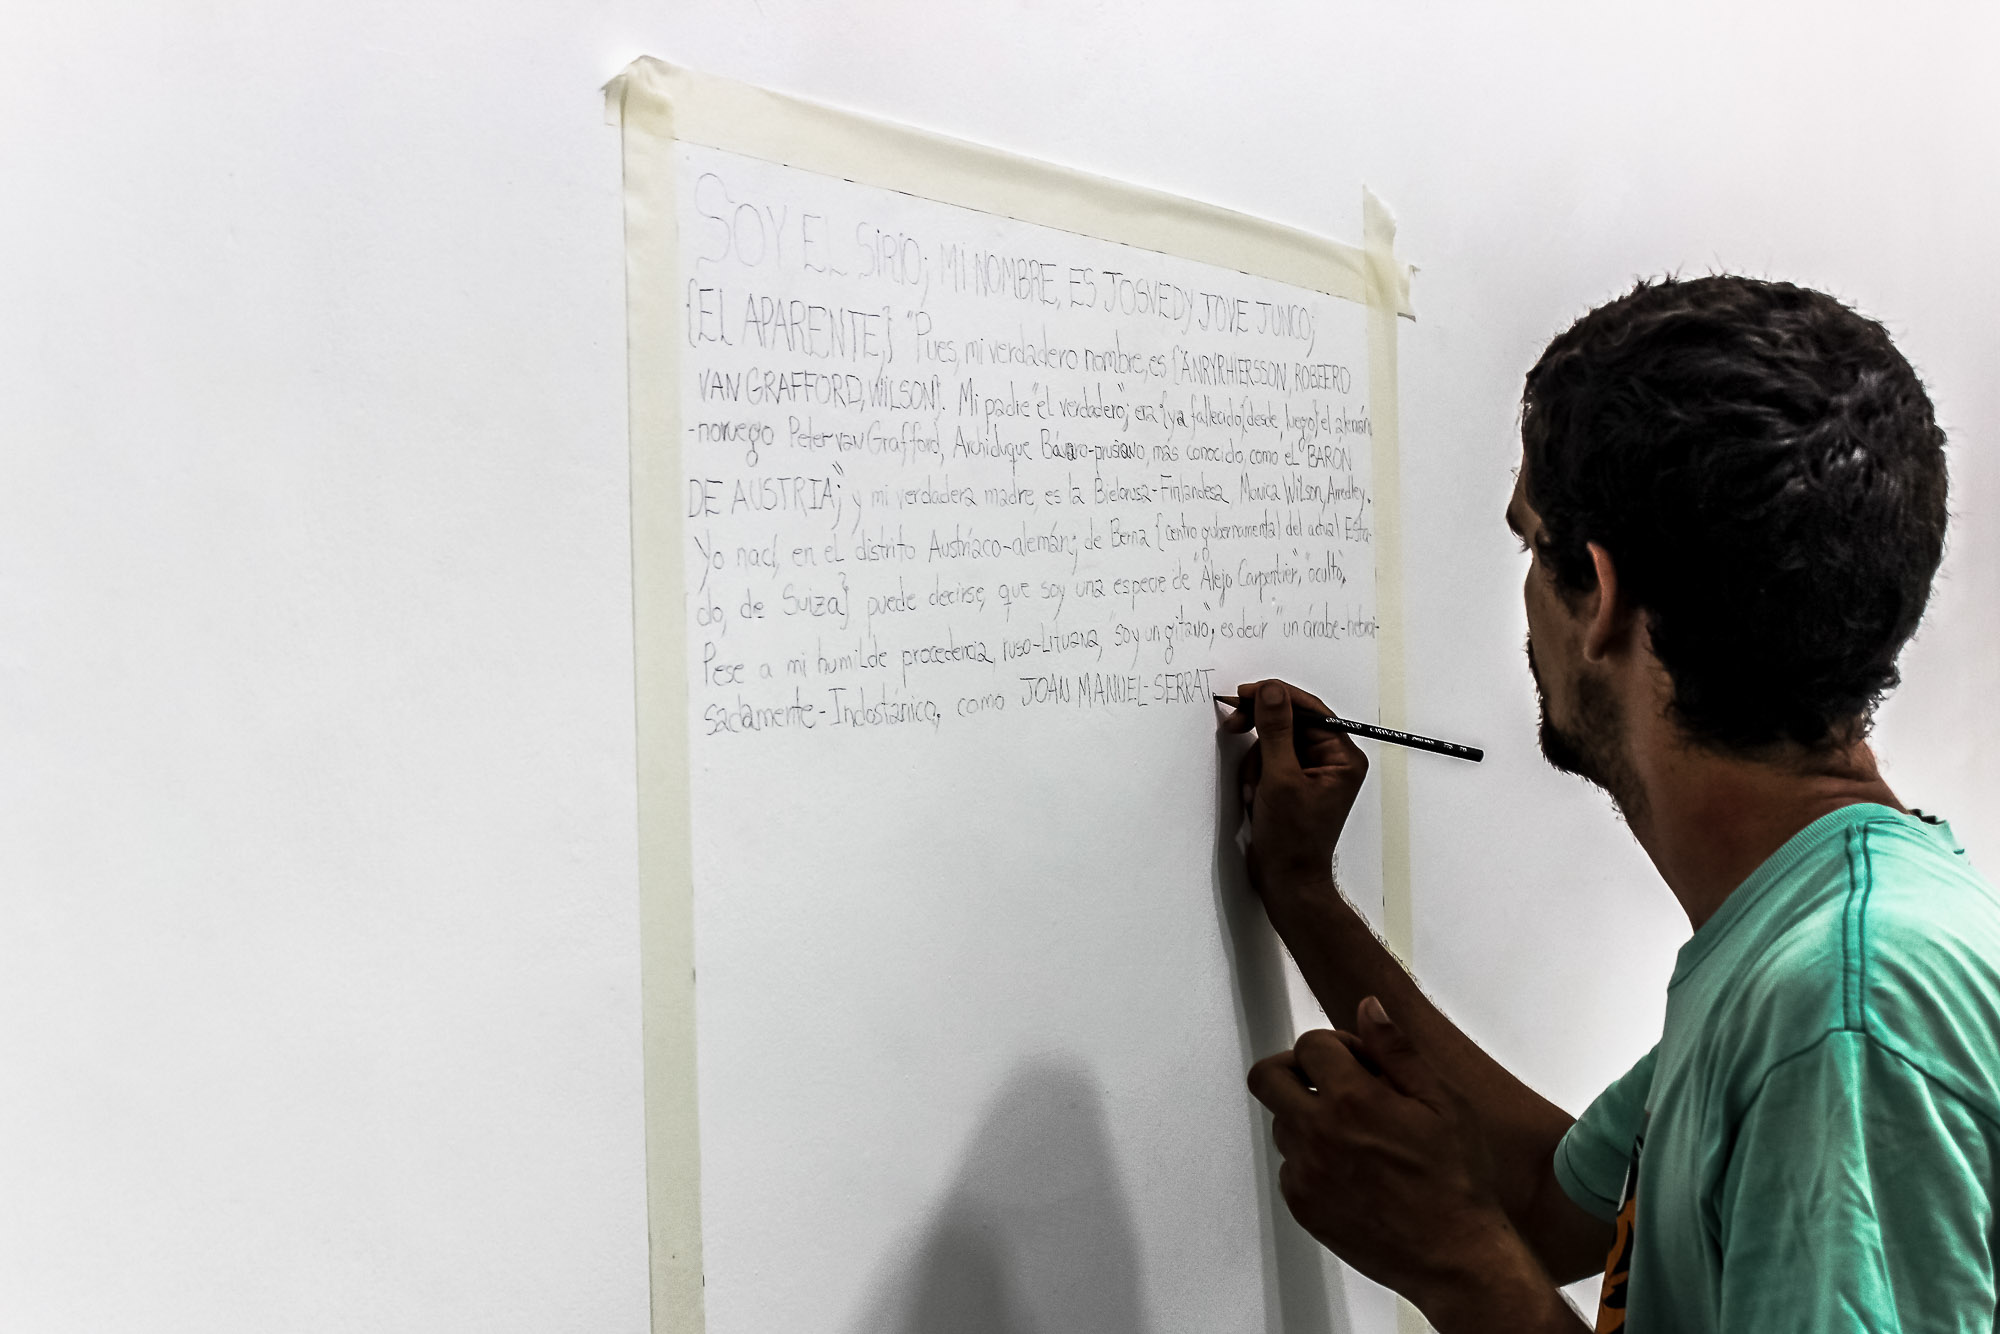 SOY EL SIRIO; MI NOMBRE, ES JOSVEDY JOVE JUNCO;
{EL APARENTE,} "Pues, mi verdadero nombre, es {ÁNRYRHIERSSON, ROBEERD
VAN GRAFFORD, WILSON}. Mi padre "el verdadero"; era {ya fallecido {desde, luego} el alemán,
-noruego Peter van Grafford, Archiduque Bávaro-prusiano, más conocido, como el BARÓN
DE AUSTRIA;" y mi verdadera madre, es la Bielorusa-Finlandesa, Monica Wilson,
Yo nací, en el distrito Austríaco-alemán; de Berna {centro gubernamental del actual Esta-
do, de Suiza} puede decirse, que soy una especie de "Alejo Carpentier", "oculto,
Pese a mi humilde procedencia, ruso-Lituana, "soy un gitano", es decir "un árabe-hebrai-
sadamente-Indostánico, como JOAN MANUEL-SERRAT,